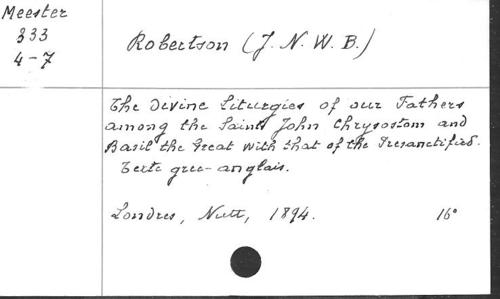 Meester
333
4-7
Robertson (J. N. W. B.)
The Divine Liturgies of our Fathers
among the Saints John Chrysostom and
Basil the Great with that of the Presanctified.
Texte grec-anglais.
Londres, Nutt, 1894. 16°